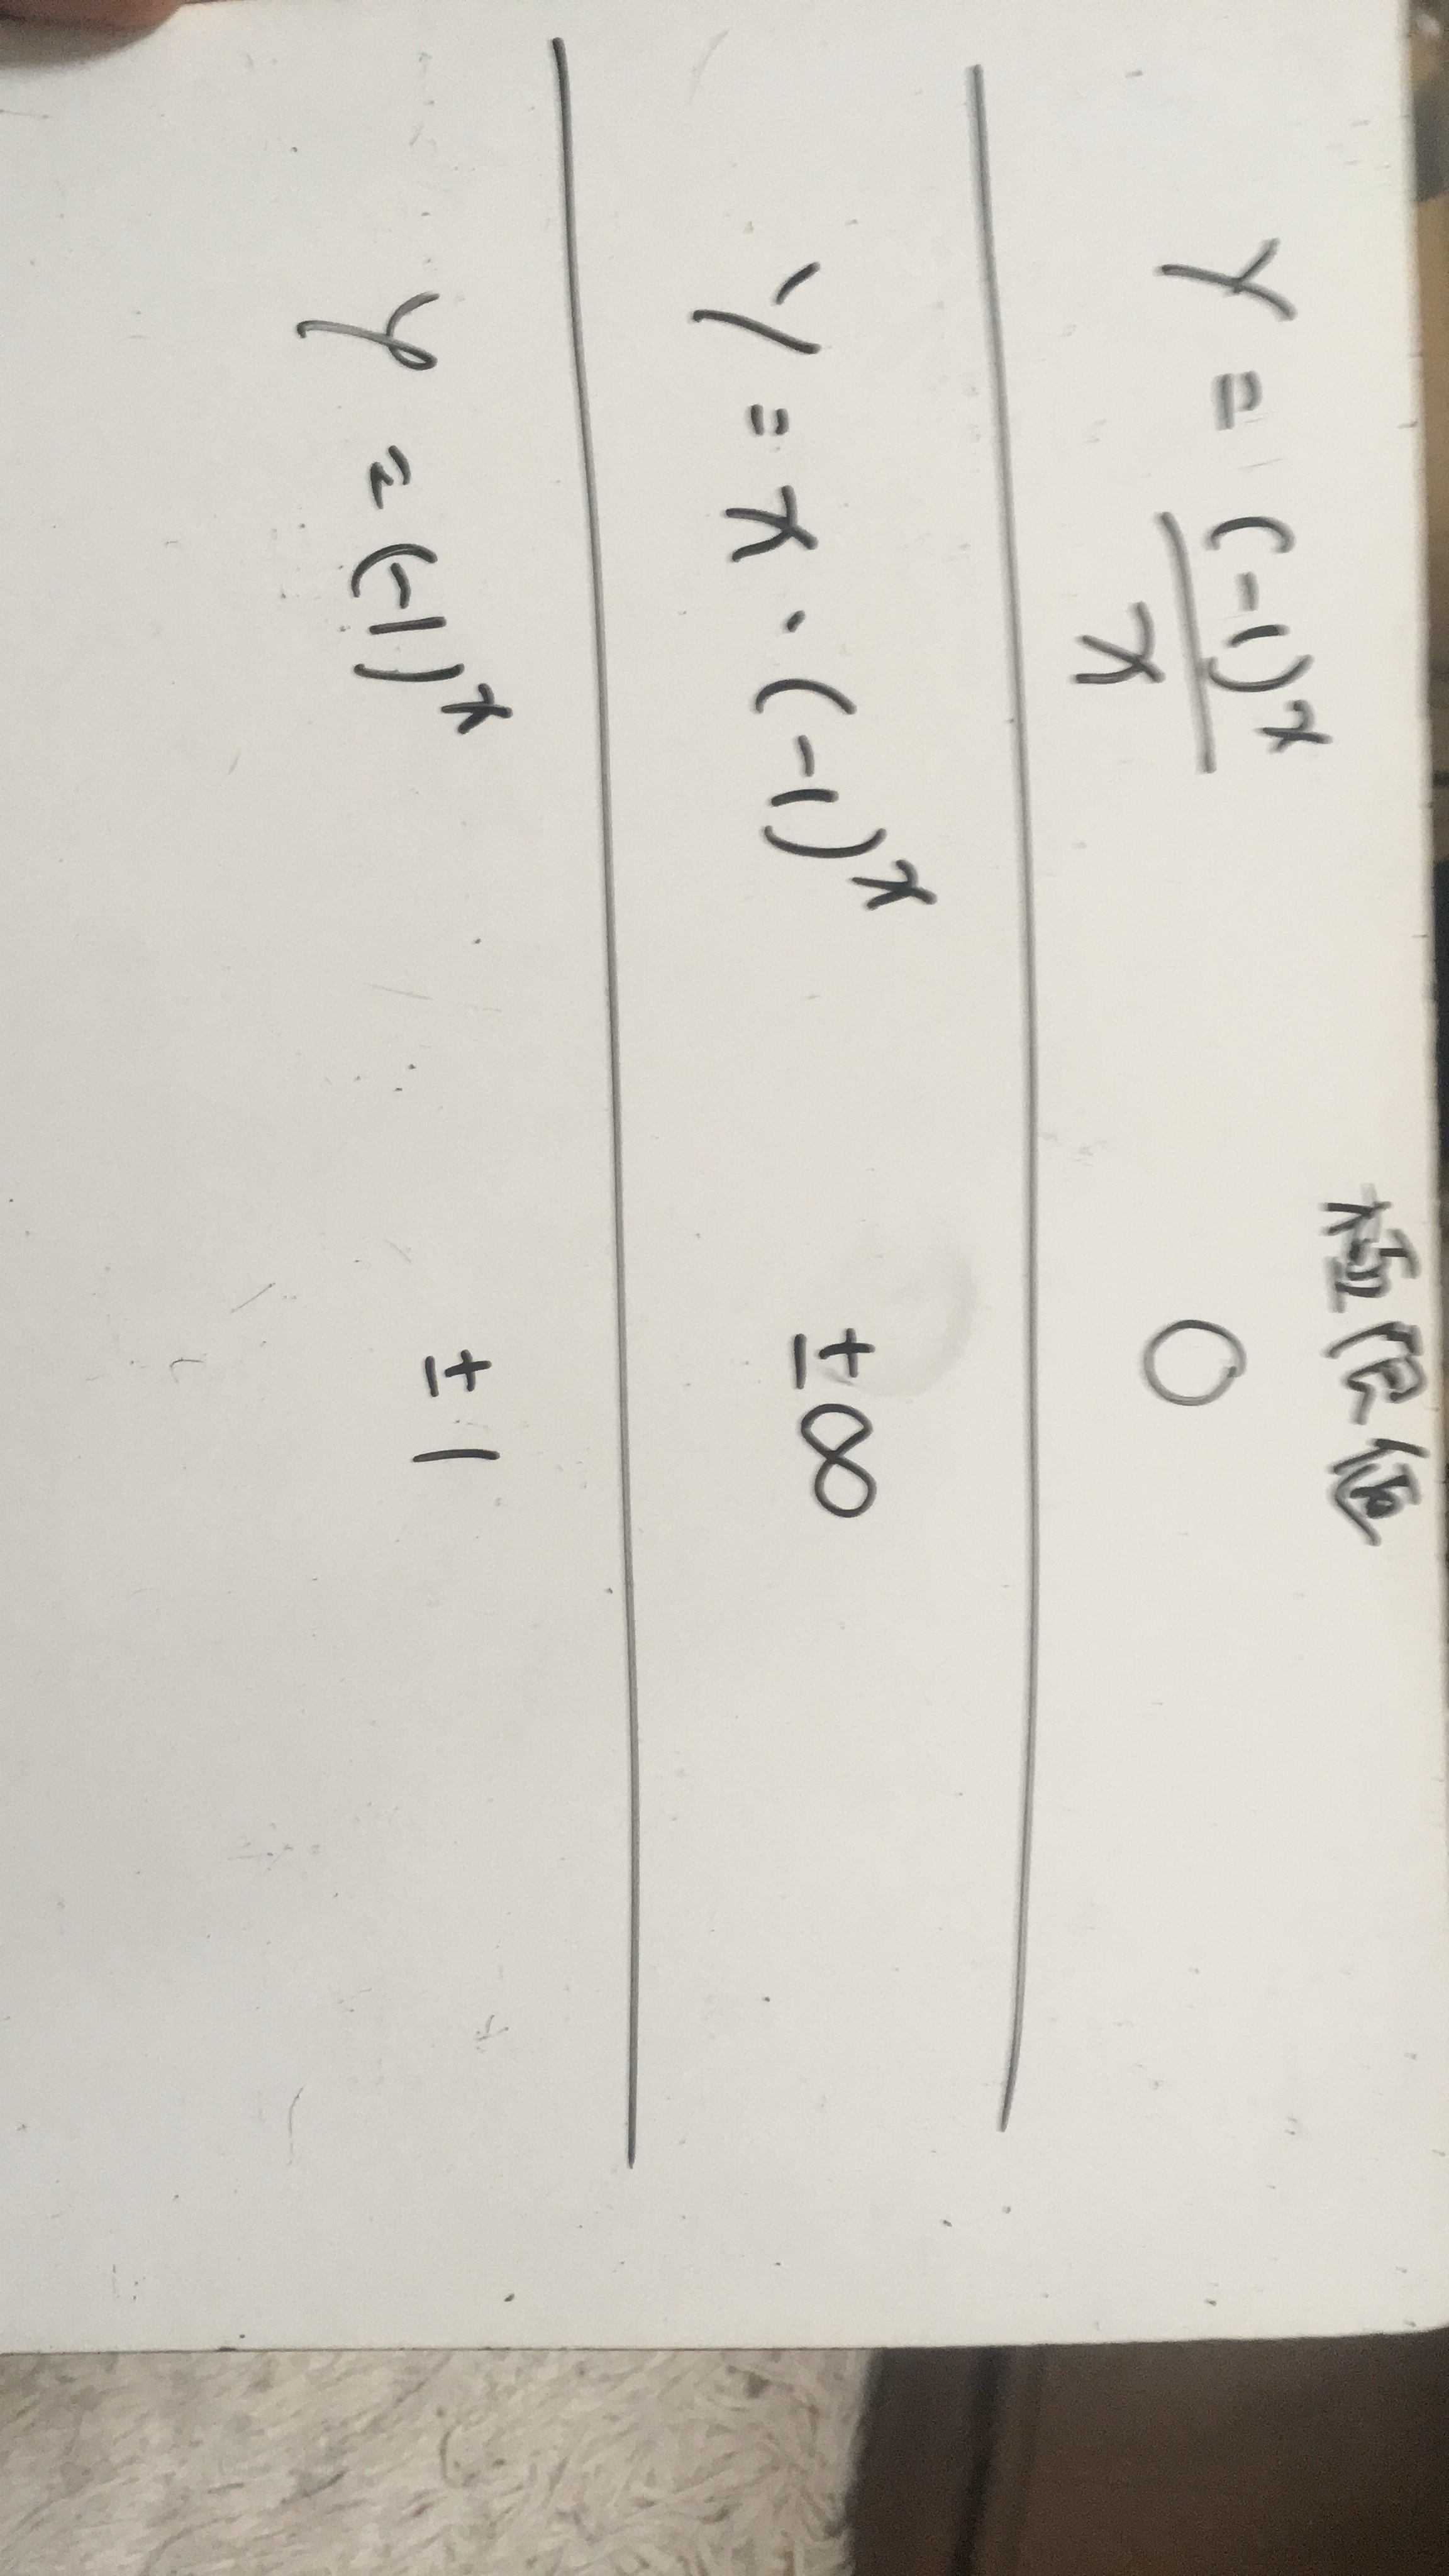 極限値
y = (-1)^x / x 0
y = x · (-1)^x ±∞
y = (-1)^x ±1